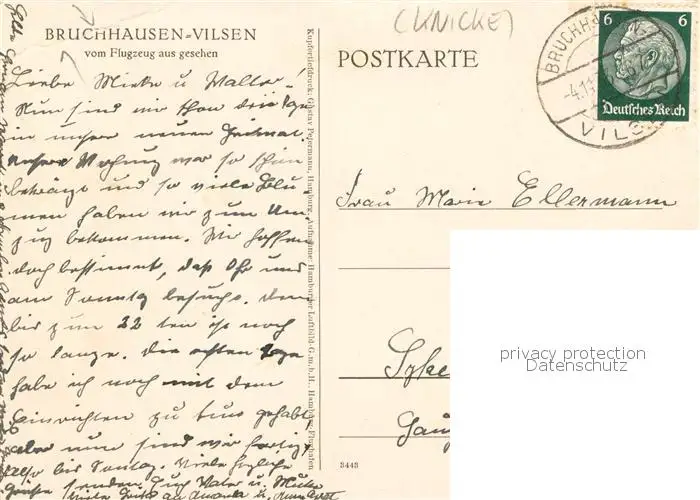 BRUCHHAUSEN-VILSEN
vom Flugzeug aus gesehen
Liebe Mieke u. Walter!
Nun sind wir schon drei Tage
in unser neuen Heimat.
Unsere Wohnung war so schön
bekränzt und so viele Blu-
men haben wir zum Um-
zug bekommen. Wir hoffen
doch bestimmt, daß Ihr uns
am Sonntag besucht. Denn
bis zum 22 ten ist noch
so lange. Die ersten Tage
habe ich noch mit dem
Einrichten zu tun gehabt,
aber nun sind wir fertig,
also bis Sontag. Viele herzliche
Grüße senden Euch Vater u. Mutter
Viele Grüße an
Kupfertiefdruck: Gustav Petermann, Hamburg. Aufnahme: Hamburger Luftbild G.m.b.H., Hamburg-Flughafen
(KNICKE)
POSTKARTE
BRUCHHAUSEN-
VILSEN
-4.11
6 6
Deutsches Reich
Frau Marie Ellermann
Syke
3443
privacy protection
Datenschutz